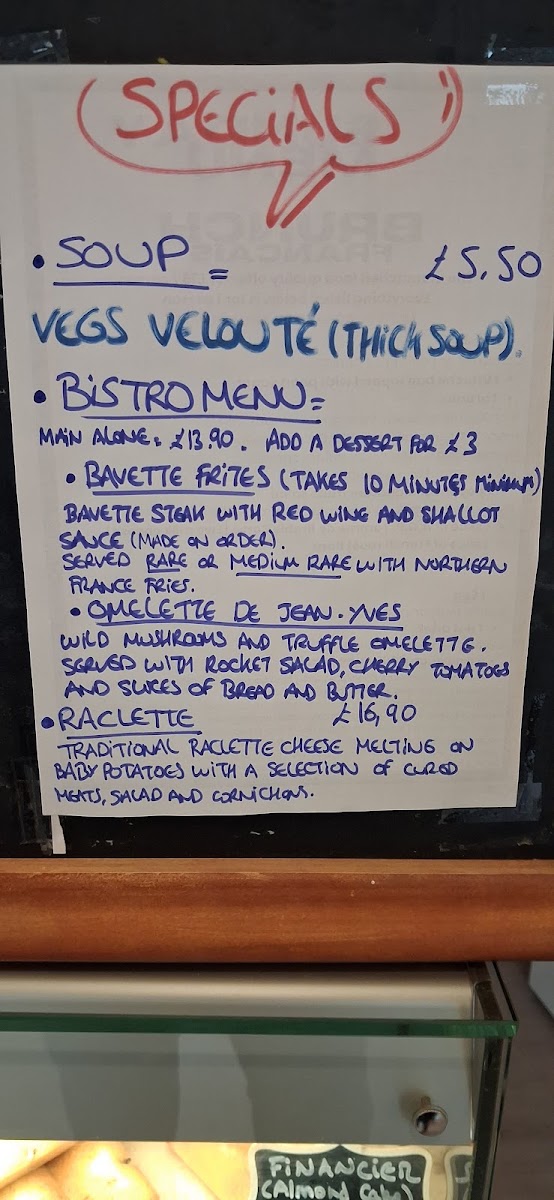 SPECiALS
• SOUP = £5,50
VEGS VELOUTÉ (THiCK SOUP).
• BiSTRO MENU =
MAIN ALONE: £13.90. ADD A DESSERT FOR £3
• BAVETTE FRiTES (TAKES 10 MINUTES MINIMUM)
BAVETTE STEAK WITH RED WINE AND SHALLOT
SAUCE (MADE ON ORDER).
SERVED RARE OR MEDIUM RARE WITH NORTHERN
FRANCE FRIES.
• OMELETTE DE JEAN-YVES
WILD MUSHROOMS AND TRUFFLE OMELETTE.
SERVED WITH ROCKET SALAD, CHERRY TOMATOES
AND SLICES OF BREAD AND BUTTER.
• RACLETTE £16,90
TRADITIONAL RACLETTE CHEESE MELTING ON
BABY POTATOES WITH A SELECTION OF CURED
MEATS, SALAD AND CORNICHONS.
BRUNCH
FRANÇAIS
FiNANCiER
(Almond Cake)